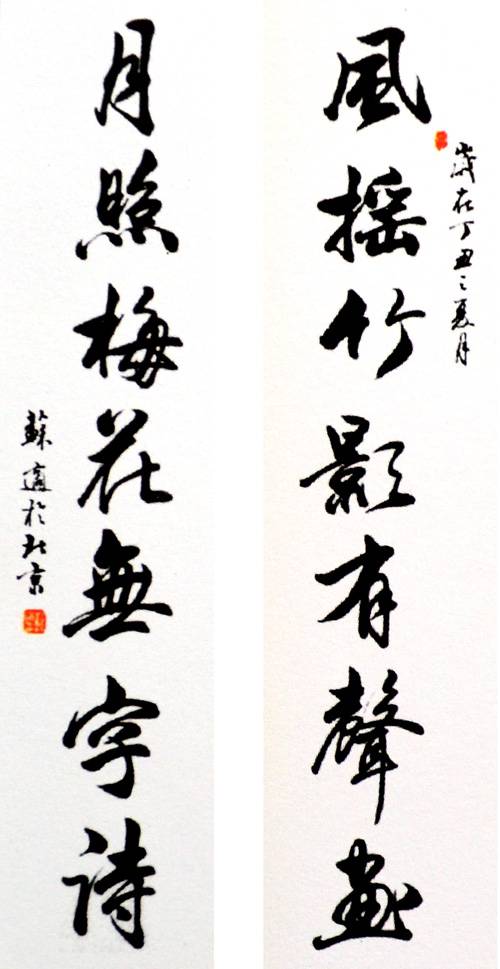 歲在丁丑之夏月
風搖竹影有聲畫
月照梅花無字詩
蘇適於北京